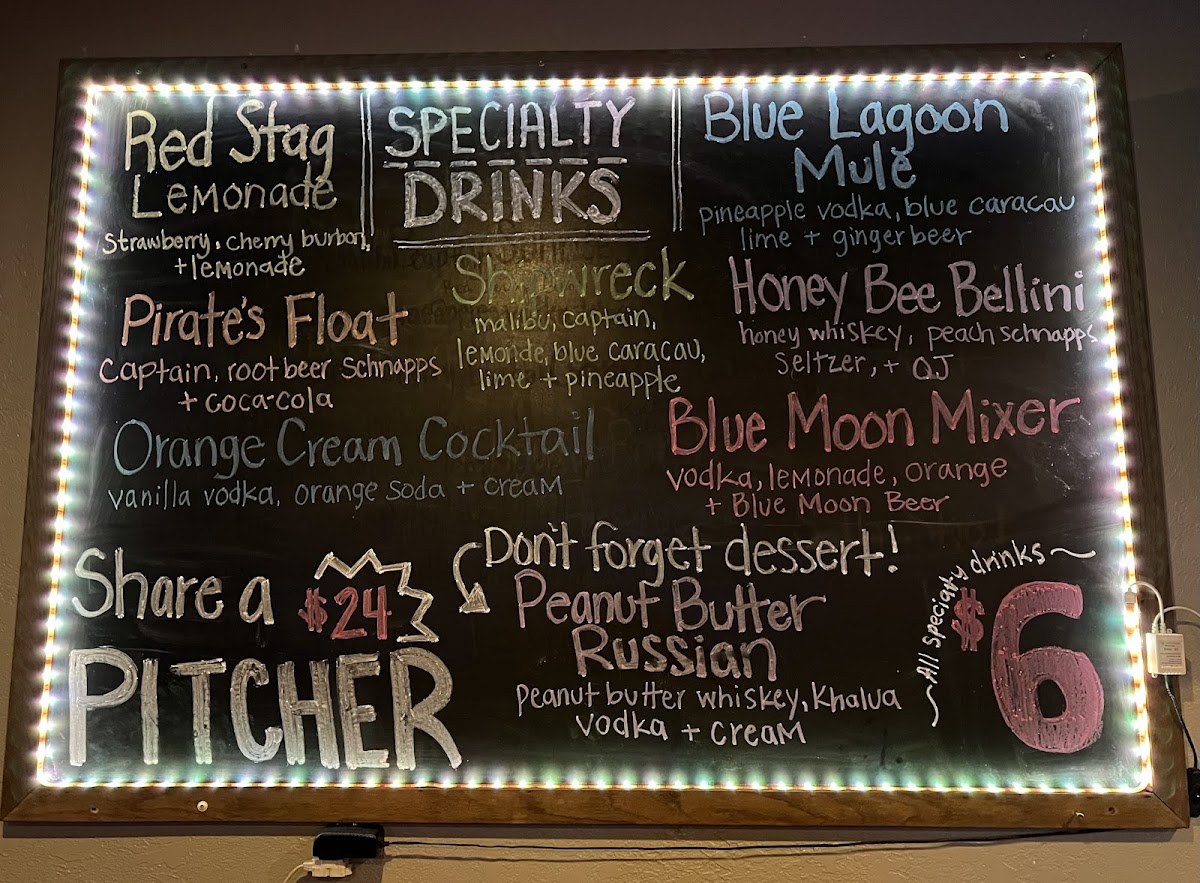 Red Stag
Lemonade
Strawberry, cherry burbon,
+ lemonade
SPECIALTY
DRINKS
Blue Lagoon
Mule
pineapple vodka, blue caracau
lime + ginger beer
Pirate's Float
Captain, root beer Schnapps
+ coca-cola
Shipwreck
malibu, captain,
lemonde, blue caracau,
lime + pineapple
Honey Bee Bellini
honey whiskey, peach schnapps
Seltzer, + OJ
Orange Cream Cocktail
vanilla vodka, orange soda + cream
Blue Moon Mixer
vodka, lemonade, orange
+ Blue Moon Beer
Share a
$24
PITCHER
Don't forget dessert!
Peanut Butter
Russian
peanut butter whiskey, Khalua
vodka + cream
All Specialty drinks
$6